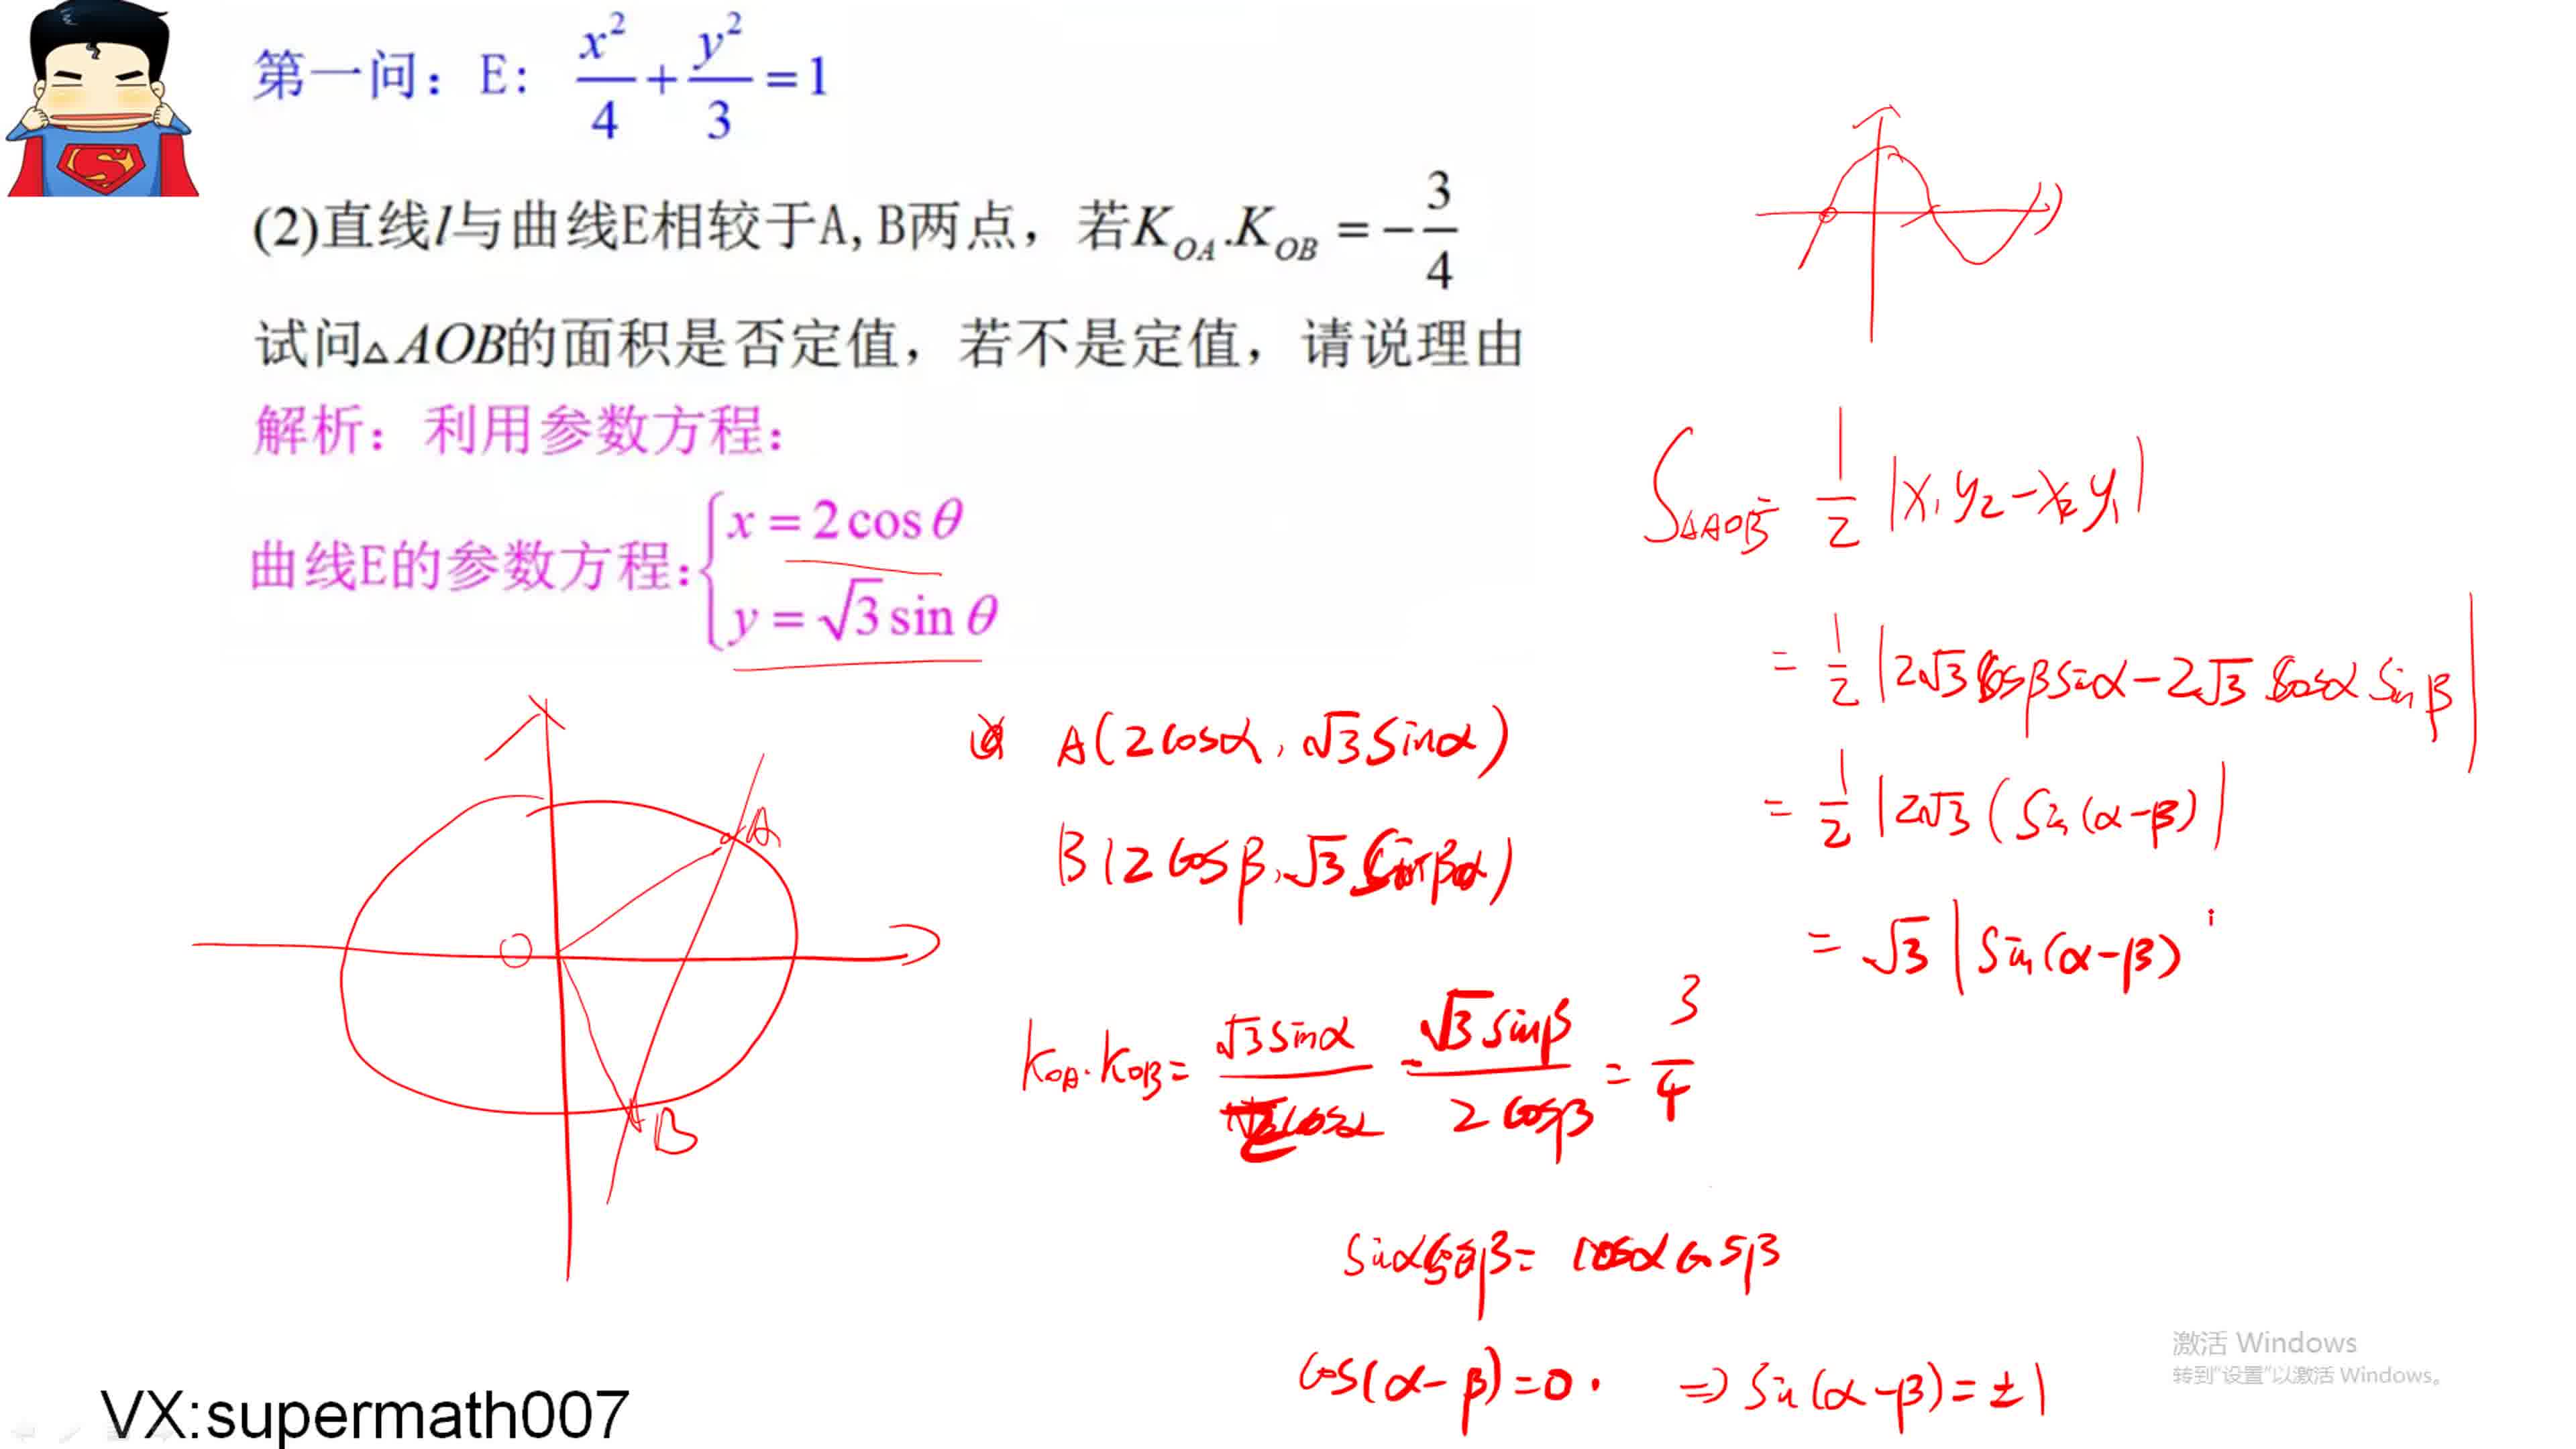 第一问：E: x²/4 + y²/3 = 1
(2)直线l与曲线E相较于A,B两点，若K_OA.K_OB = -3/4
试问△AOB的面积是否定值，若不是定值，请说理由
解析：利用参数方程：
曲线E的参数方程：{x = 2cosθ
y = √3 sinθ
A
O
B
A(2cosα, √3 sinα)
B(2cosβ, √3 sinβ)
K_OA·K_OB = √3 sinα / 2cosα · √3 sinβ / 2cosβ = 3/4
sinα sinβ = cosα cosβ
cos(α-β)=0. ⇒ sin(α-β)=±1
S△AOB = 1/2 |x₁y₂-x₂y₁|
= 1/2 |2√3 cosβ sinα - 2√3 cosα sinβ|
= 1/2 |2√3 (sin(α-β)|
= √3 |sin(α-β)
VX:supermath007
激活 Windows
转到"设置"以激活 Windows。